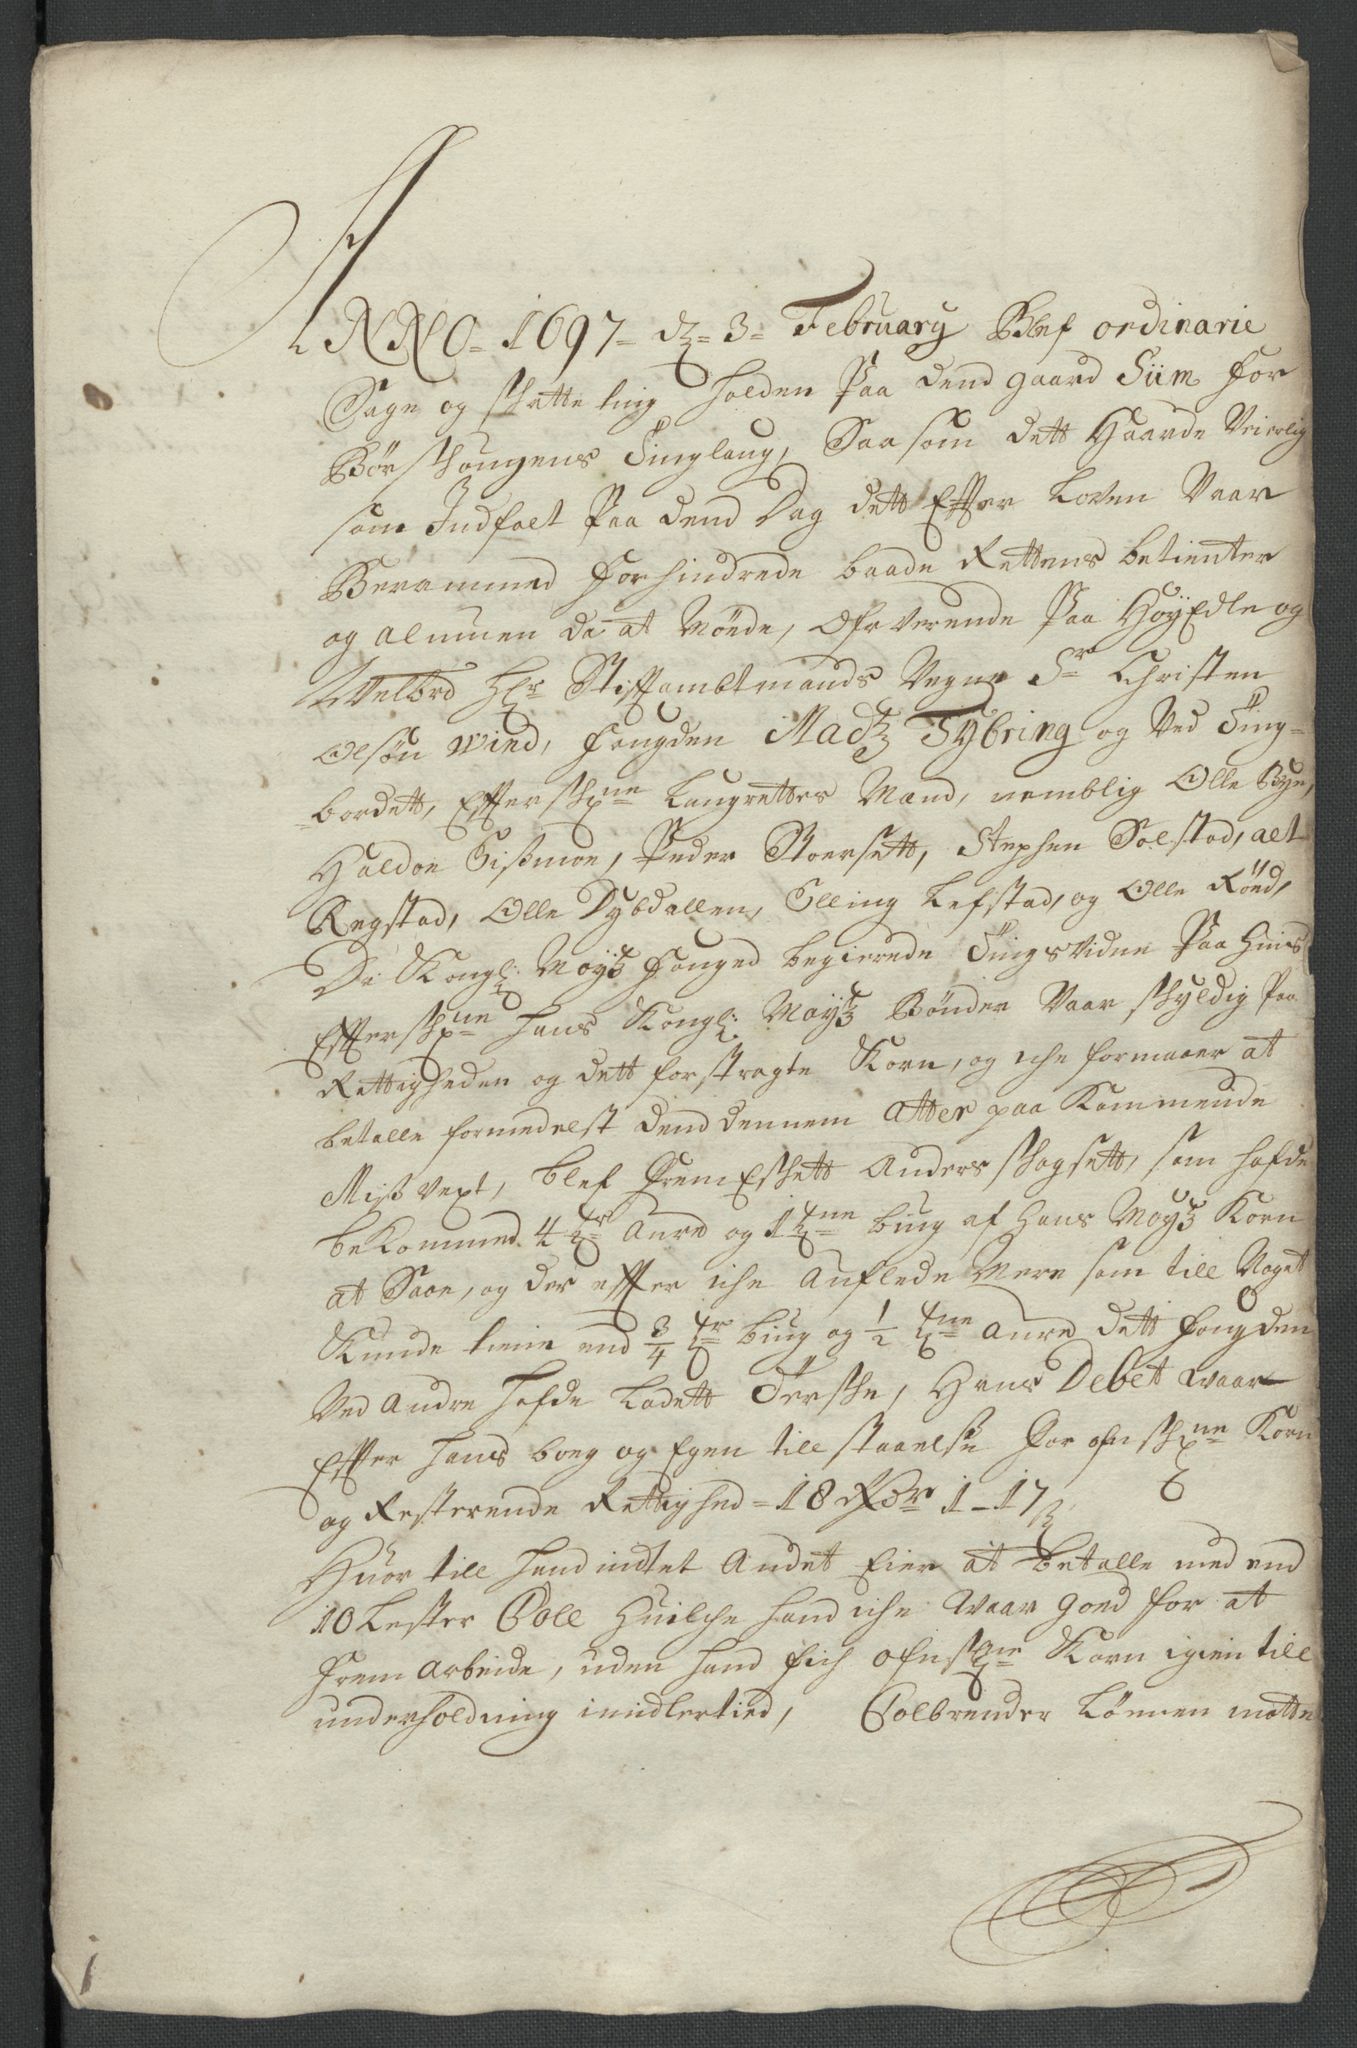 ANNO= 1697= dz= 3= February Blef ordinarie
Sage og skatte ting holden Paa dend gaard Siim for
Børskougens Tinglaug, Saasom dett Haarde Veierlig
som Indfalt Paa dend Dag dett Effter Loven Vaar
Berammed forhindrede baade Rettens betienter
og almuen da at Møede, Ofververende Paa HøyEdle og
Welbrd Hr Stiftambtmands Vegne Sr Christen
Olsøn Wind, fougden Madtz Tybring og Ved Ting=
=bordett, Effterskne Laugrettes Mænd, nemblig Olle Bye,
Haldoe Sissmoe, Peder Stoersett, Stephen Solstad, alt
Regstad, Olle Dybdallen, Elling Lefstad, og Olle Rønd,
Da Kongl: Mayts fouged begierede Tingsvidne Paa huis
Effterskne hans Kongl: Mayts Bønder Vaar skyldig Paa
Rettigheden og dett forstragte Korn, og iche formaaer at
betalle formedelst dend dennem atter paa Kommende
Missvext, blef fremEskett Anders skogsett, som hafde
bekommed 4 tr aure og 1 tne bing af Hans Mayts Korn
at Saae, og der effter iche Auflede Mere som till Noget
Kunde tiene end 3/4 tr biug og 1/2 tne aure dett fougden
Ved Andre hafde Ladett Terske, Hans Debet Waar
Effter hans bog og Egen till staaelse for ofnskne Korn
og Resterende Rettighed = 18 Rdr 1 - 17 s
Huor till hand indtet Andet Eier at betalle med end
10 Lester Coll Huilche hand iche Waar goed for at
frem Arbeide, uden hand fich ofnskne Korn igien till
underholdning imidlertied, Colbrender Lønnen motte
1